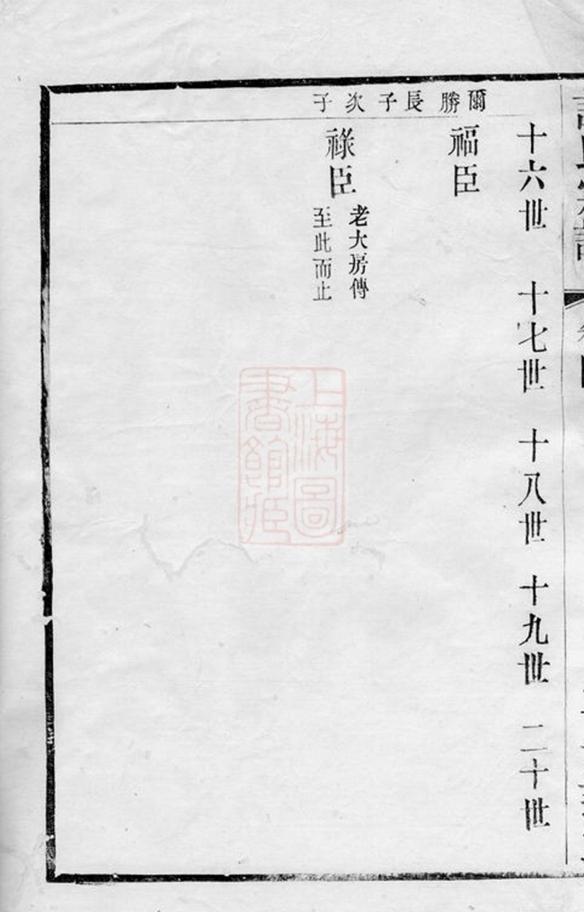 十六世 十七世 十八世 十九世 二十世
爾勝長子
福臣
次子
祿臣
老大房傳
至此而止
上海圖
書館藏